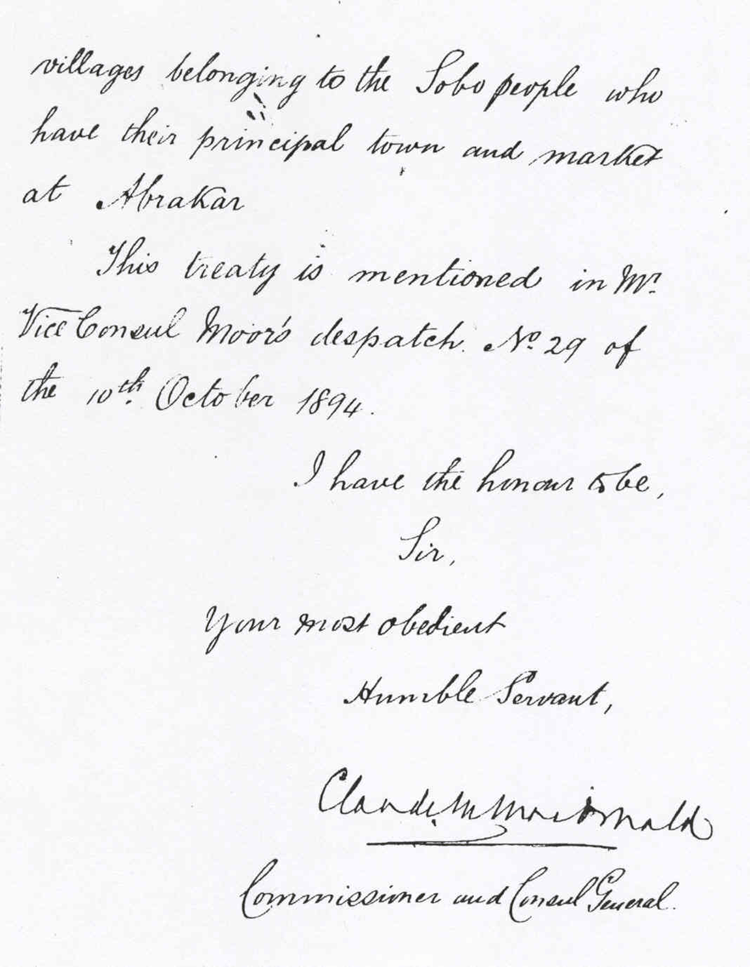 villages belonging to the Sobo people who
have their principal town and market
at Abrakar
This treaty is mentioned in Mr.
Vice Consul Moor's despatch. No 29 of
the 10th. October 1894.
I have the honour to be,
Sir,
Your most obedient
Humble Servant,
Claude M MacDonald
Commissioner and Consul General.